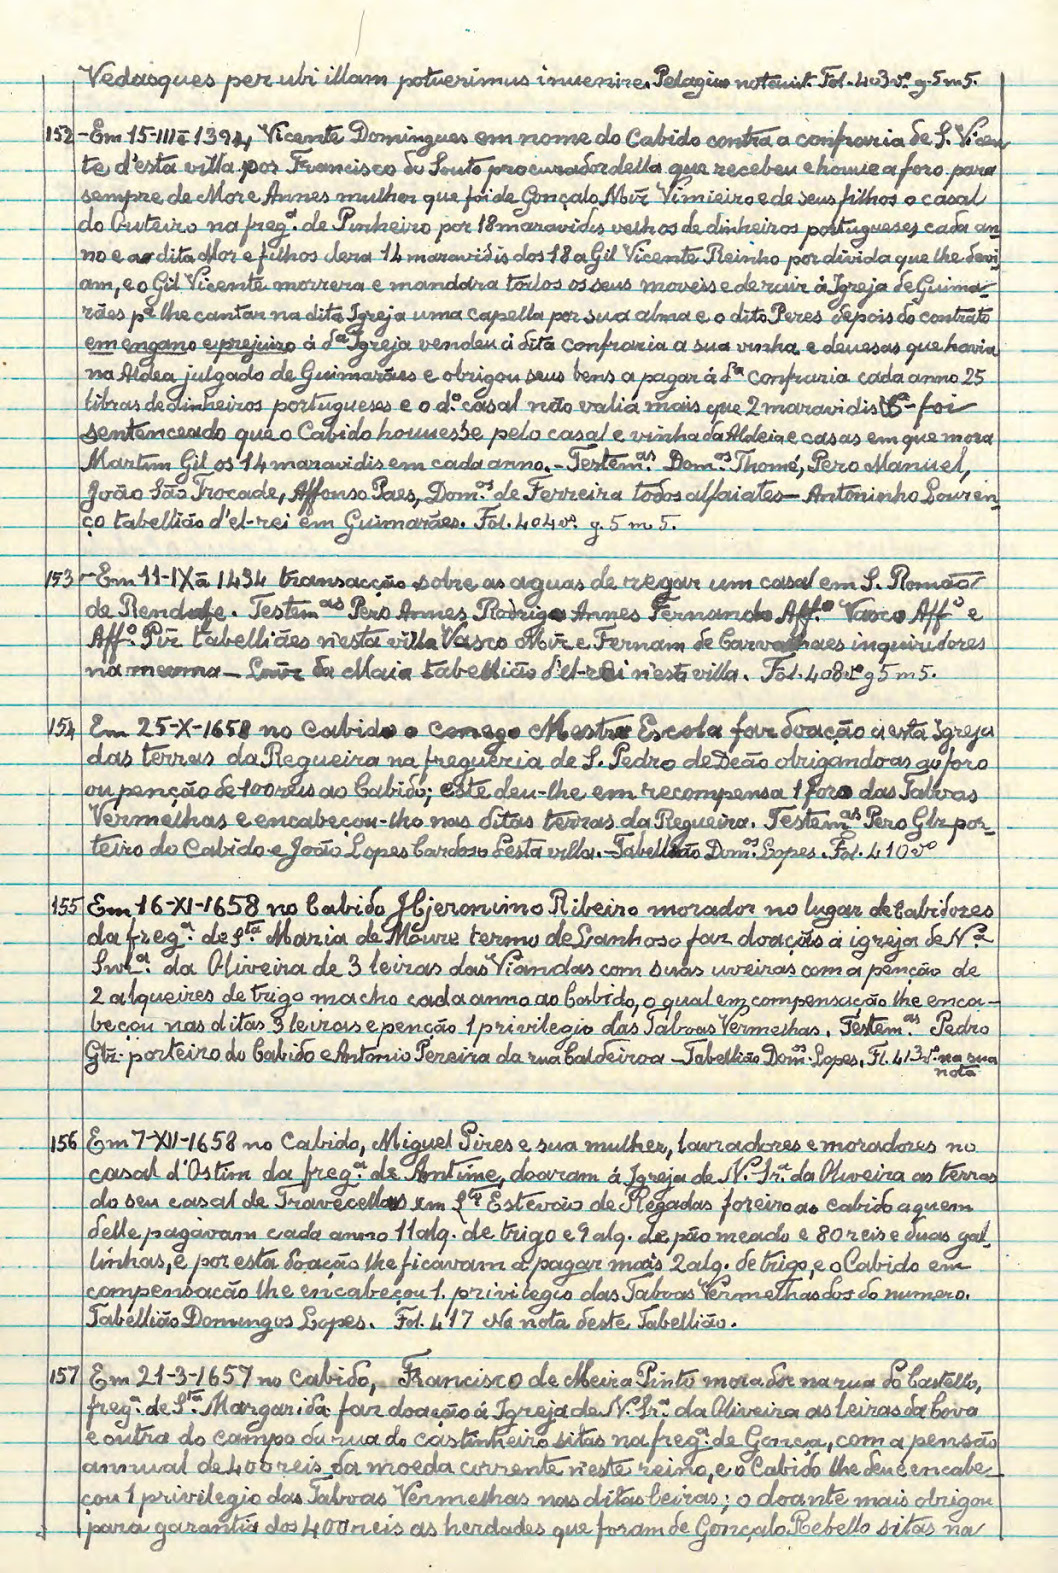 Vedasques per ubi illam potuerimus invenire. Pelagius notavit. Fol. 403vº g. 5 m 5.
152 - Em 15-III-ē 1394, Vicente Domingues em nome do Cabido contra a confraria de S. Vicen
te d'esta villa por Francisco do Souto procurador della que recebeu e houve a foro para
sempre de Mor e Annes mulher que foi de Gonçalo Miz Vimieiro e de seus filhos o casal
do Outeiro na fregª. de Pinheiro por 18 maravidis velhos de dinheiros portugueses cada an
no e a dita Mor e filhos dera 14 maravidis dos 18 a Gil Vicente Reinho por divida que lhe devi
am, e o Gil Vicente morrera e mandara todos os seus moveis e de raiz á Igreja de Guima-
rães pª lhe cantar na dita Igreja uma capella por sua alma e o dito Peres depois do contrato
em engano e prejuizo á dª Igreja vendeu á dita confraria a sua vinha e devesas que havia
na Aldea julgado de Guimarães e obrigou seus bens a pagar á dª confraria cada anno 25
libras de dinheiros portugueses e o dº casal não valia mais que 2 maravidis - foi
sentenceado que o Cabido houvesse pelo casal e vinha da Aldeia e casas em que mora
Martim Gil os 14 maravidis em cada anno. - Testemªs Domºs Thomé, Pero Manuel,
João São Trocade, Affonso Paes, Domºs de Ferreira todos alfaiates - Antoninho Louren
ço tabellião d'el-rei em Guimarães. Fol. 404vº. g. 5 m 5.
153 - Em 11-IX-ā 1434 transacção sobre as aguas de regar um casal em S. Romão
de Rendufe. Testemªs Pero Annes, Rodrigo Annes Fernando Affº Vasco Affº e
Affº Pir tabelliães n'esta villa Vasco Miz e Fernam de Carvalhaes inquiridores
na mesma - Lour da Maia tabellião d'el-rei n'esta villa. Fol. 408vº g 5 m 5.
154 Em 25-X-1658 no Cabido o conego Mestre Escola faz doação a esta Igreja
das terras da Regueira na freguezia de S. Pedro de Deão obrigando as ao foro
ou penção de 100 reis ao Cabido; este deu-lhe em recompensa 1 foro das Taboas
Vermelhas e encabeçou-lho nas ditas terras da Regueira. Testemªs Pero Glz por-
teiro do Cabido e João Lopes Cardoso desta villa. - Tabellião Domºs Lopes. Fol. 410vº
155 Em 16-XI-1658 no Cabido Hjeronimo Ribeiro morador no lugar de Cabidozes
da fregª. de Stª. Maria de Moure termo de Lanhoso faz doação á igreja de Nª
Snrª. da Oliveira de 3 leiras das Viandas com suas uveiras com a penção de
2 alqueires de trigo macho cada anno ao Cabido, o qual em compensação lhe enca-
beçou nas ditas 3 leiras e penção 1 privilegio das Taboas Vermelhas. Testemªs Pedro
Glz porteiro do Cabido e Antonio Pereira da rua Caldeiroa - Tabellião Domºs Lopes. Fl. 413vº na sua
nota
156 Em 7-XII-1658 no Cabido, Miguel Pires e sua mulher, lavradores e moradores no
casal d'Ostim da fregª. de Antime, doaram á Igreja de N. Srª. da Oliveira as terras
do seu casal de Travecellas em Stº Estevão de Regadas foreiro ao cabido a quem
delle pagavam cada anno 11 alq. de trigo e 9 alq. de pão meado e 80 reis e duas gal
linhas, e por esta doação lhe ficavam a pagar mais 2 alq. de trigo, e o Cabido em
compensação lhe encabeçou 1 privilegio das Taboas Vermelhas dos do numero.
Tabellião Domingos Lopes. Fol. 417 Na nota deste Tabellião.
157 Em 21-3-1657 no Cabido, Francisco de Meira Pinto morador na rua do Castello,
fregª. de Stª. Margarida faz doação á Igreja de N. Srª. da Oliveira as leiras da Cova
e outra do campo da rua do castinheiro sitas na fregª. de Gonça, com a pensão
annual de 400 reis da moeda corrente n'este reino, e o Cabido lhe deu e encabe-
çou 1 privilegio das Taboas Vermelhas nas ditas leiras; o doante mais obrigou
para garantia dos 400 reis as herdades que foram de Gonçalo Rebello sitas na